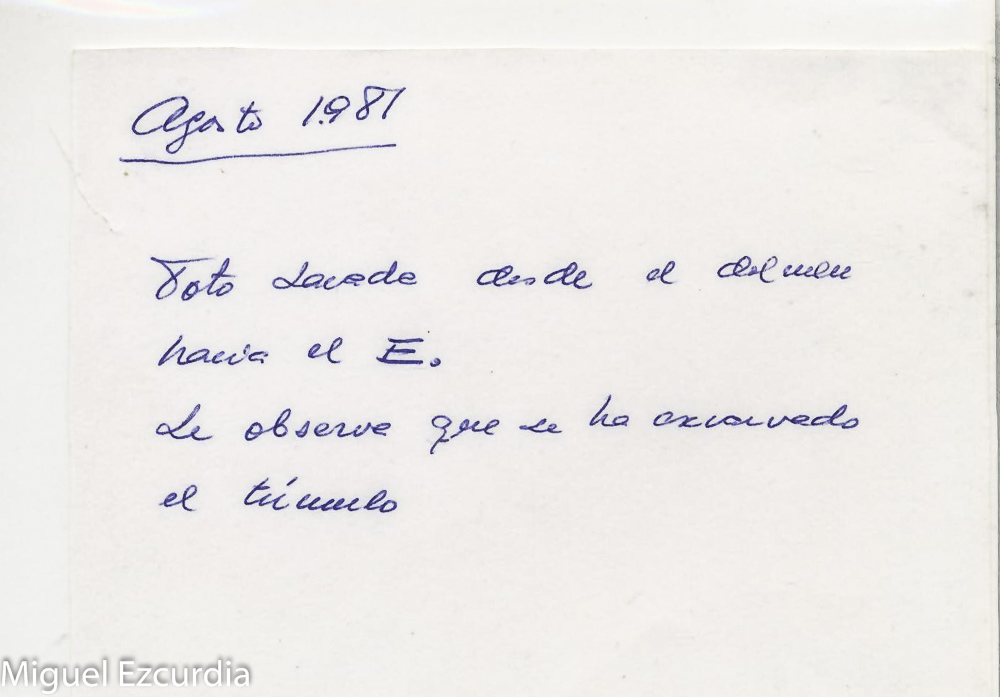 Agosto 1.981
Foto sacada desde el dolmen
hacia el E.
Se observa que se ha excavado
el túmulo
Miguel Ezcurdia